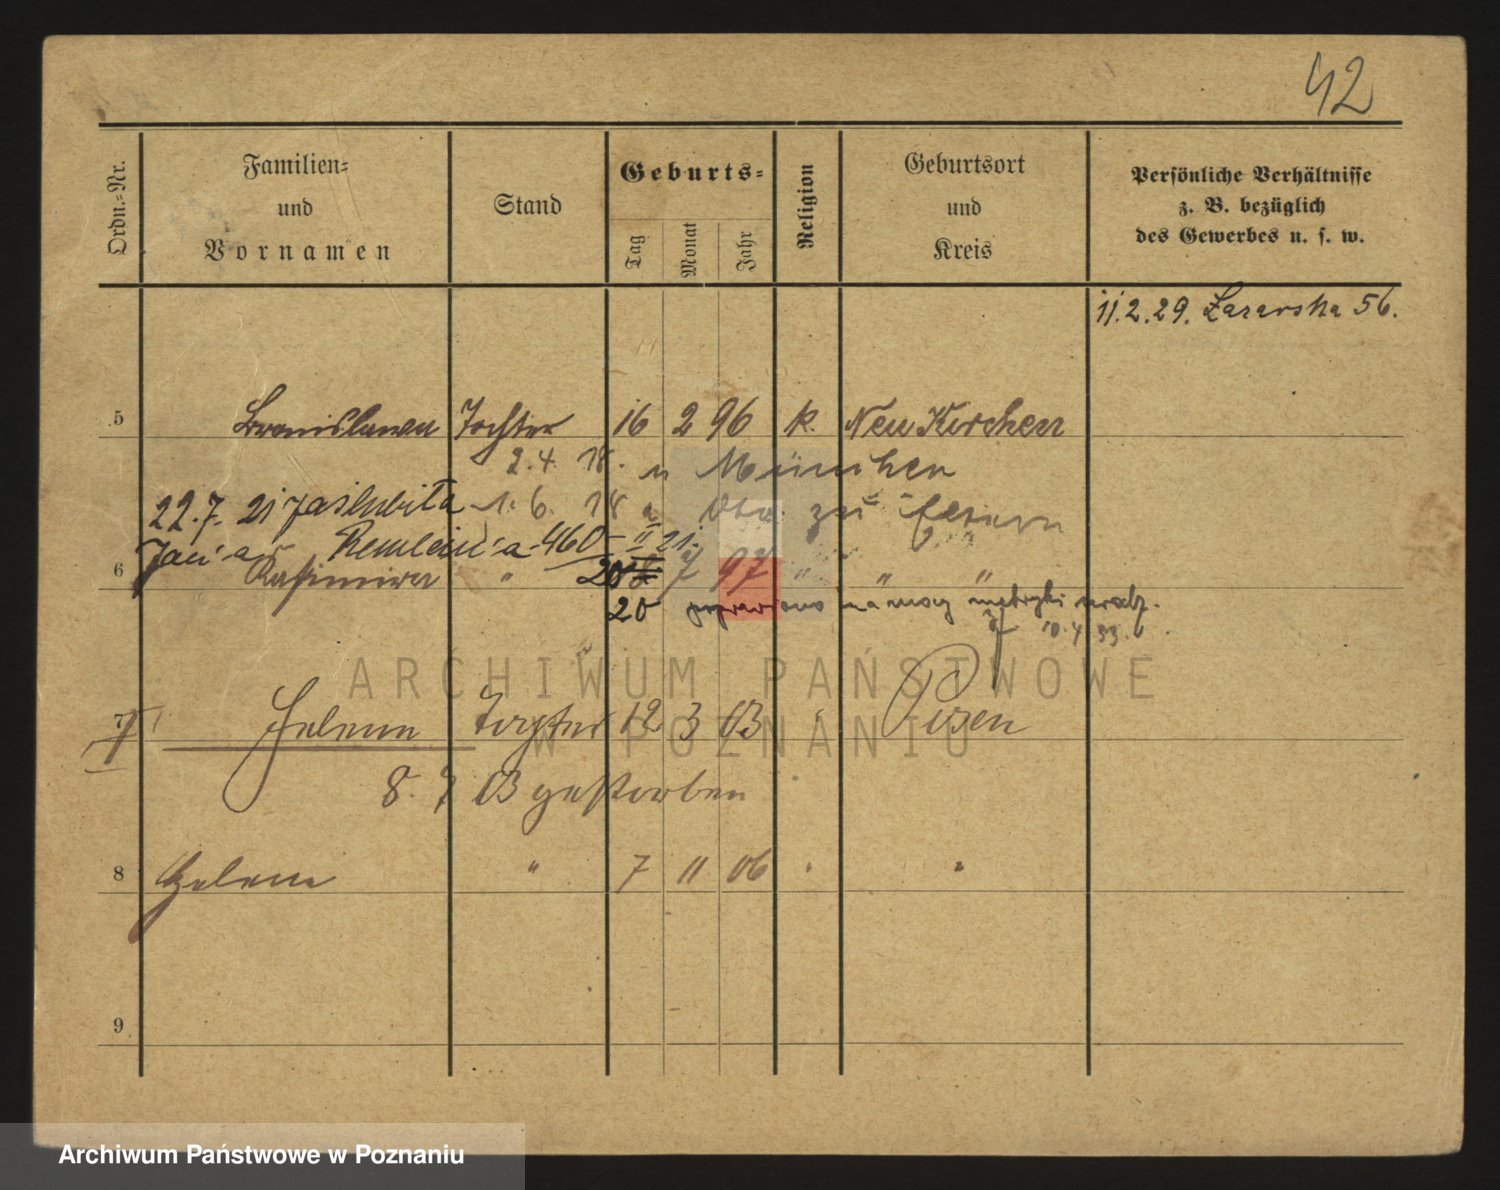 42
Ordn.-Nr.
Familien-
und
Vornamen
Stand
Geburts-
Tag
Monat
Jahr
Religion
Geburtsort
und
Kreis
Persönliche Verhältnisse
z. B. bezüglich
des Gewerbes u. s. w.
11.2.29. Łazarska 56.
5 Bronislawa Tochter 16 2 96 k. Neu Kirchen
2.4. 18. n München
22.7. 21 zaślubiła 1. 6. 18 v. zu Eltern
460 II 21.
6 Kasimira " 20 7 97 " " "
20 poprawiono na mocy metryki urodz.
10.4.33.
7 Helene Tochter 12 3 03 Posen
8. 7 03 gestorben
8 Helene " 7 11 06
9
ARCHIWUM PAŃSTWOWE
W POZNANIU
Archiwum Państwowe w Poznaniu